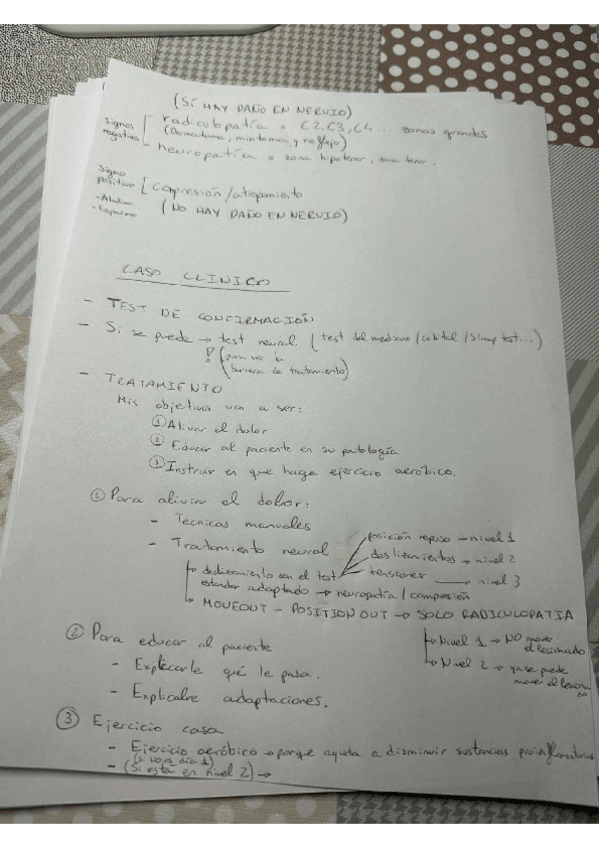 (SI HAY DAÑO EN NERVIO)
Signos negativos [ radiculopatía = C2, C3, C4... zonas grandes
(Dermatoma, miotomo, y reflejo)
neuropatía = zona hipotenar, zona tenar.
Signo positivo [ compresión/atrapamiento
(NO HAY DAÑO EN NERVIO)
CASO CLINICO
- TEST DE CONFIRMACIÓN
- Si se puede → test neural (test del mediano/cubital/Slump test...)
(para ver la
barrera de tratamiento)
- TRATAMIENTO
Mis objetivos van a ser:
① Aliviar el dolor
② Educar al paciente en su patología
③ Instruir en que haga ejercicio aeróbico.
① Para aliviar el dolor:
- Tecnicas manuales
- Tratamiento neural
posición reposo → nivel 1
deslizamientos → nivel 2
tensor → nivel 3
deslizamiento con el test
estandar adaptado → neuropatía/compresión
MOVEOUT - POSITION OUT → SOLO RADICULOPATIA
Nivel 1 → NO mover
el lesionado
Nivel 2 → ya se puede
mover el lesiona
do
② Para educar al paciente
- Explicarle qué le pasa.
- Explicalre adaptaciones.
③ Ejercicio casa
- Ejercicio aeróbico → porque ayuda a disminuir sustancias proinflamatorias
- (Si está en nivel 2) →